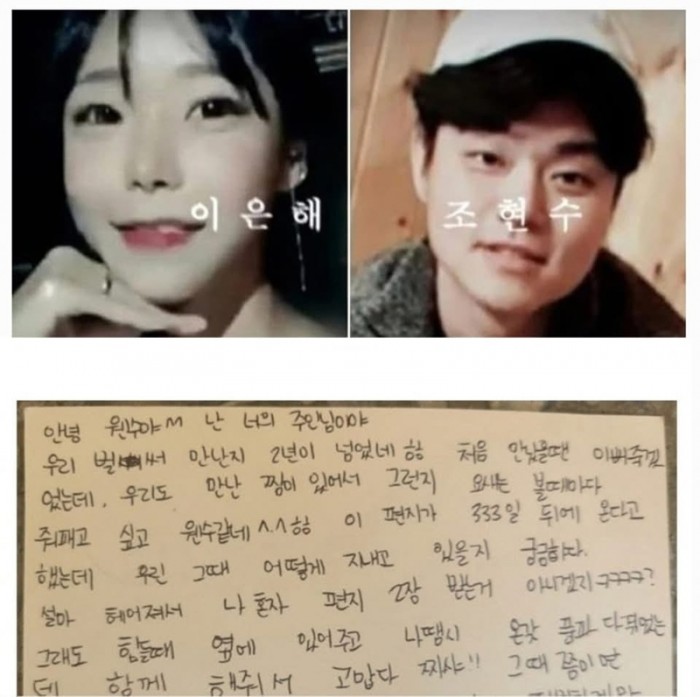 이은해
조현수
안녕 원수야~ 난 너의 주인님이야
우리 벌써 만난지 2년이 넘었네 항 처음 만났을땐 이뻐죽겠
었는데, 우리도 만난 짬이 있어서 그런지 요새는 볼때마다
줘패고 싶고 원수같네^.^항 이 편지가 333일 뒤에 온다고
했는데 우린 그때 어떻게 지내고 있을지 궁금하다.
설마 헤어져서 나 혼자 편지 2장 받는거 아니겠지ㅋㅋㅋㅋ?
그래도 힘들때 옆에 있어주고 나땜시 온갖 풍파 다겪었는
데 함께 해줘서 고맙다 찌샤!! 그때 쯤이면